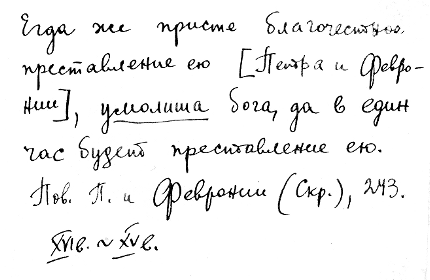 Егда же приспе благочестное
преставление ею [Петра и Февро-
нии], умолиша бога, да в един
час будет преставление ею.
Пов. П. и Февронии (Скр.), 243.
XVIв. ~ XVв.